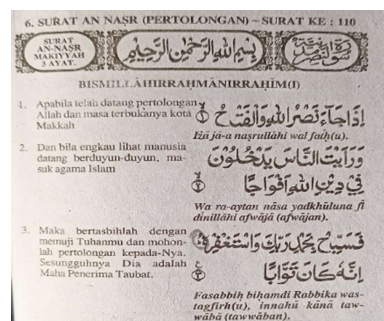 6. SURAT AN NAṢR (PERTOLONGAN) – SURAT KE : 110
SURAT
AN-NAṢR
MAKIYYAH
3 AYAT.
بِسْمِ اللهِ الرَّحْمٰنِ الرَّحِيْمِ
BISMILLĀHIRRAḤMĀNIRRAḤĪM(I)
1. Apabila telah datang pertolongan
Allah dan masa terbukanya kota
Makkah
اِذَا جَآءَ نَصْرُ اللهِ وَالْفَتْحُ
Iżā jā-a naṣrullāhi wal fatḥ(u).
2. Dan bila engkau lihat manusia
datang berduyun-duyun, ma-
suk agama Islam
وَرَاَيْتَ النَّاسَ يَدْخُلُوْنَ
فِيْ دِيْنِ اللهِ اَفْوَاجًا
Wa ra-aytan nāsa yadkhūluna fī
dinillāhi afwājā (afwājan).
3. Maka bertasbihlah dengan
memuji Tuhanmu dan mohon-
lah pertolongan kepada-Nya.
Sesungguhnya Dia adalah
Maha Penerima Taubat.
فَسَبِّحْ بِحَمْدِ رَبِّكَ وَاسْتَغْفِرْهُ
اِنَّهٗ كَانَ تَوَّابًا
Fasabbiḥ biḥamdi Rabbika was-
tagfirh(u), innahū kāna taw-
wābā (tawwāban).